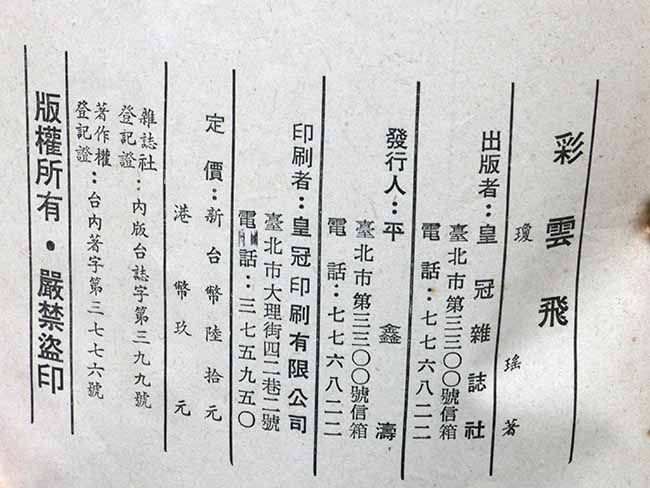 彩雲飛
瓊瑤著
出版者：皇冠雜誌社
臺北市第三三〇〇號信箱
電話：七七六八二二
發行人：平鑫濤
臺北市第三三〇〇號信箱
電話：七七六八二二
印刷者：皇冠印刷有限公司
臺北市大理街四二巷二號
電話：三七五九五〇
定價：新台幣陸拾元
港幣玖元
雜誌社登記證：內版台誌字第三九九號
著作權登記證：台內著字第三七七六號
版權所有・嚴禁盜印